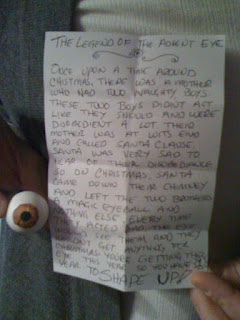 THE LEGEND OF THE PARENT EYE
ONCE UPON A TIME AROUND
CHISTMAS, THERE WAS A MOTHER
WHO HAD TWO NAUGHTY BOYS.
THESE TWO BOYS DIDNT ACT
LIKE THEY SHOULD AND WERE
DISOBEDIENT A LOT. THEIR
MOTHER WAS AT WITS END
AND CALLED SANTA CLAUSE.
SANTA WAS VERY SAD TO
HEAR OF THEIR DISOBEDIANCE
SO ON CHRISTMAS, SANTA
CAME DOWN THEIR CHIMNEY
AND LEFT THE TWO BROTHERS
A MAGIC EYEBALL AND
NOTHING ELSE. EVERY TIME
THEY ACTED BAD THE EYE
WOULD SEE THEM AND THEY
WOULDN'T GET ANYTHING FOR
CHRISTMAS. YOURE GETTING THE
EYE THIS YEAR SO YOU HAVE
YEAR TO SHAPE UP!